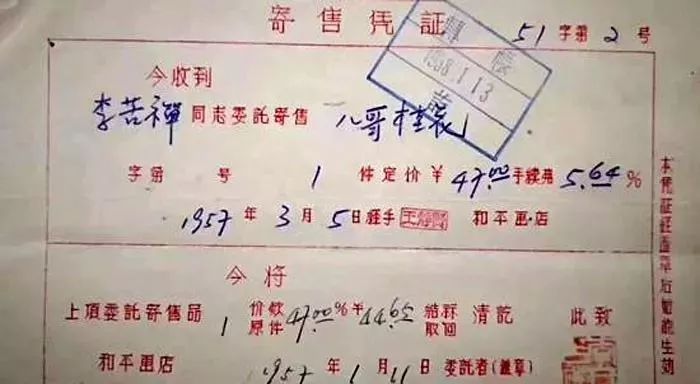 寄售凭証
51字第2号
1958.1.13
今收到
李苦禅同志委託寄售 八哥
字第 号 1 件定价￥47.00手續费5.64%
1957年3月5日經手 和平画店
今将
上項委託寄售品 1 价款原件 47.00%￥44.65 結算取回 清訖 此致
和平画店 1957年1月11日 委託者(盖章)